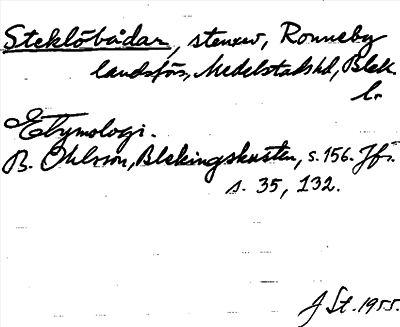 Steklöbådar, stenrev, Ronneby
landsfös, Medelstads hd, Blek.
l.
Etymologi.
B. Ohlsson, Blekingskusten, s. 156. Jfr.
s. 35, 132.
J St. 1955.